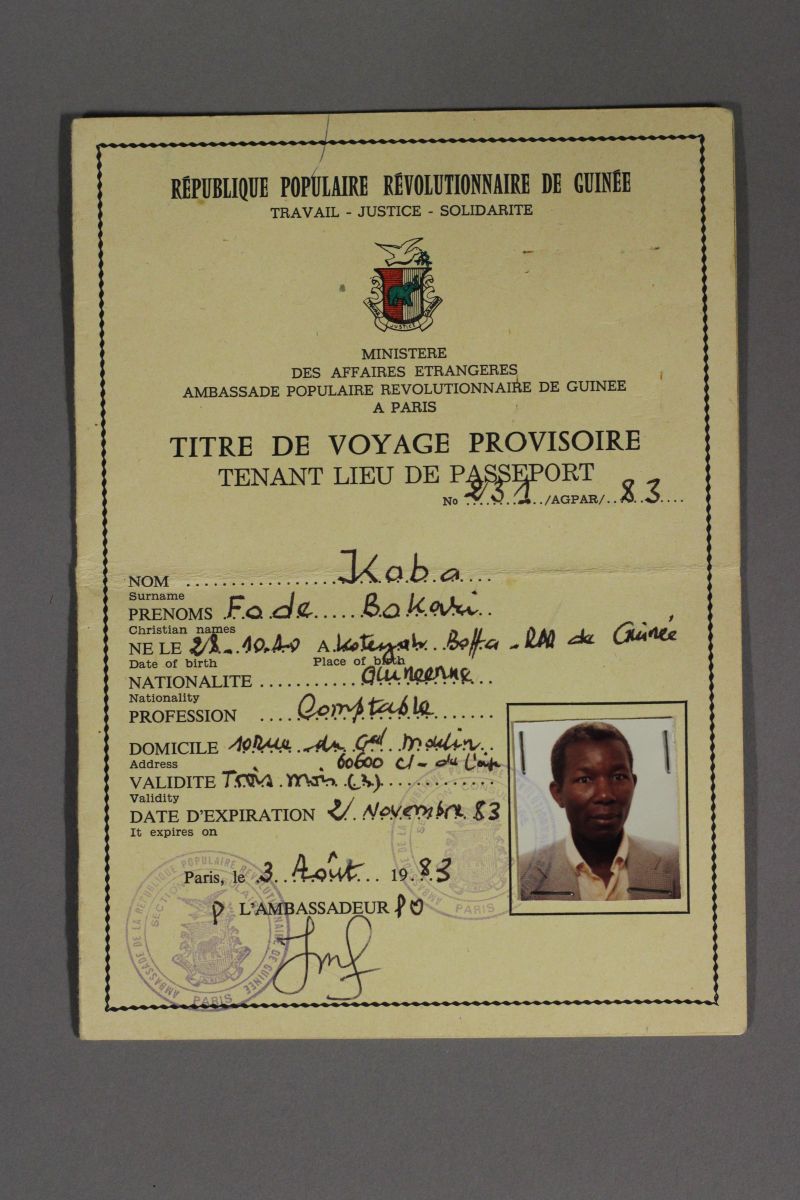 RÉPUBLIQUE POPULAIRE RÉVOLUTIONNAIRE DE GUINÉE
TRAVAIL - JUSTICE - SOLIDARITE
JUSTICE
MINISTERE
DES AFFAIRES ETRANGERES
AMBASSADE POPULAIRE REVOLUTIONNAIRE DE GUINEE
A PARIS
TITRE DE VOYAGE PROVISOIRE
TENANT LIEU DE PASSEPORT
No 231 /AGPAR/ 83
NOM Kaba
Surname
PRENOMS Fode Bakari
Christian names
NE LE 28-10.40 A Boffa - de Guinée
Date of birth Place of birth
NATIONALITE Guineenne
Nationality
PROFESSION Comptable
DOMICILE 10 Rue du Gal Moulin
Address 60600
VALIDITE Trois mois (3)
Validity
DATE D'EXPIRATION 2/ Novembre 83
It expires on
Paris, le 3 Août 1983
P L'AMBASSADEUR PO
AMBASSADE DE LA REPUBLIQUE POPULAIRE REVOLUTIONNAIRE DE GUINEE
PARIS
PARIS